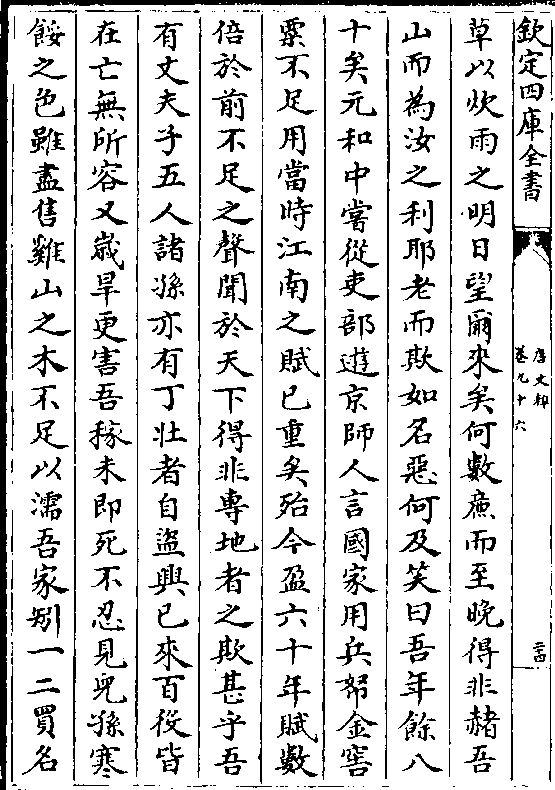 欽定四庫全書
唐文粹
卷九十六
二十四
草以炊雨之明日望爾來矣何數廉而至晚得非赭吾
山而為汝之利耶老而欺如名惡何及笑曰吾年餘八
十矣元和中嘗從吏部遊京師人言國家用兵帑金窖
粟不足用當時江南之賦已重矣殆今盈六十年賦數
倍於前不足之聲聞於天下得非專地者之欺甚乎吾
有丈夫子五人諸孫亦有丁壯者自盜興已來百役皆
在亡無所容又歲旱更害吾稼未即死不忍見兒孫寒
餒之色雖盡售雞山之木不足以濡吾家矧一二買名